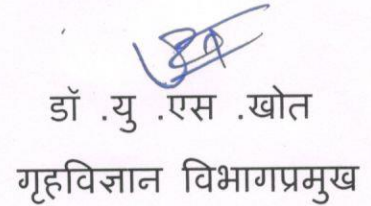 डॉ .यु .एस .खोत
गृहविज्ञान विभागप्रमुख